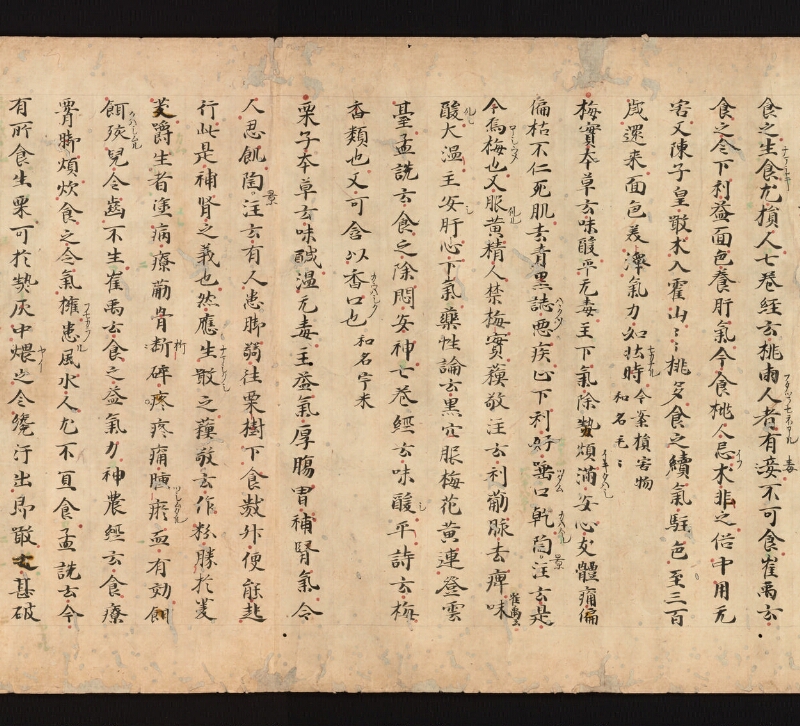 食之生食尤損人七巻経云桃両人者有毒不可食崔禹云
食之令下利益面色養肝氣今食桃人忌朮非之俗中用无
害又陳子皇散朮入霍山〻〻桃多食之續氣駐色至三百
歳還来面色美澤氣力如壮時 今案損害物 和名毛〻
梅實本草云味酸平无毒主下氣除熱煩満安心支體痛偏
偏枯不仁死肌去青黒誌悪疾止下利好唾口乾陶景注云是
今烏梅也又服黄精人禁梅實蘓敬注云利筋脉去痺味
酸大温主安肝心下氣藥性論云黒穴服梅花黄連登雲
臺孟詵云食之除悶安神七巻経云味酸平詩云梅
香類也又可含以香口也 和名宇米
栗子本草云味醎温无毒主益氣厚腸胃補腎氣令
人忍飢陶景注云有人患脚弱往栗樹下食数升便能起
行此是補腎之義也然應生散之蘓敬云作粉勝於菱
芰嚼生者塗病療筋骨断碎疼痛腫瘀血有効餇
餌孩兒令齒不生崔禹云食之益氣力神農経云食療
胃脚煩炊食之令氣擁患風水人尤不宜食孟詵云今
有所食生栗可於熱灰中煨之令纔汗出即散之甚破